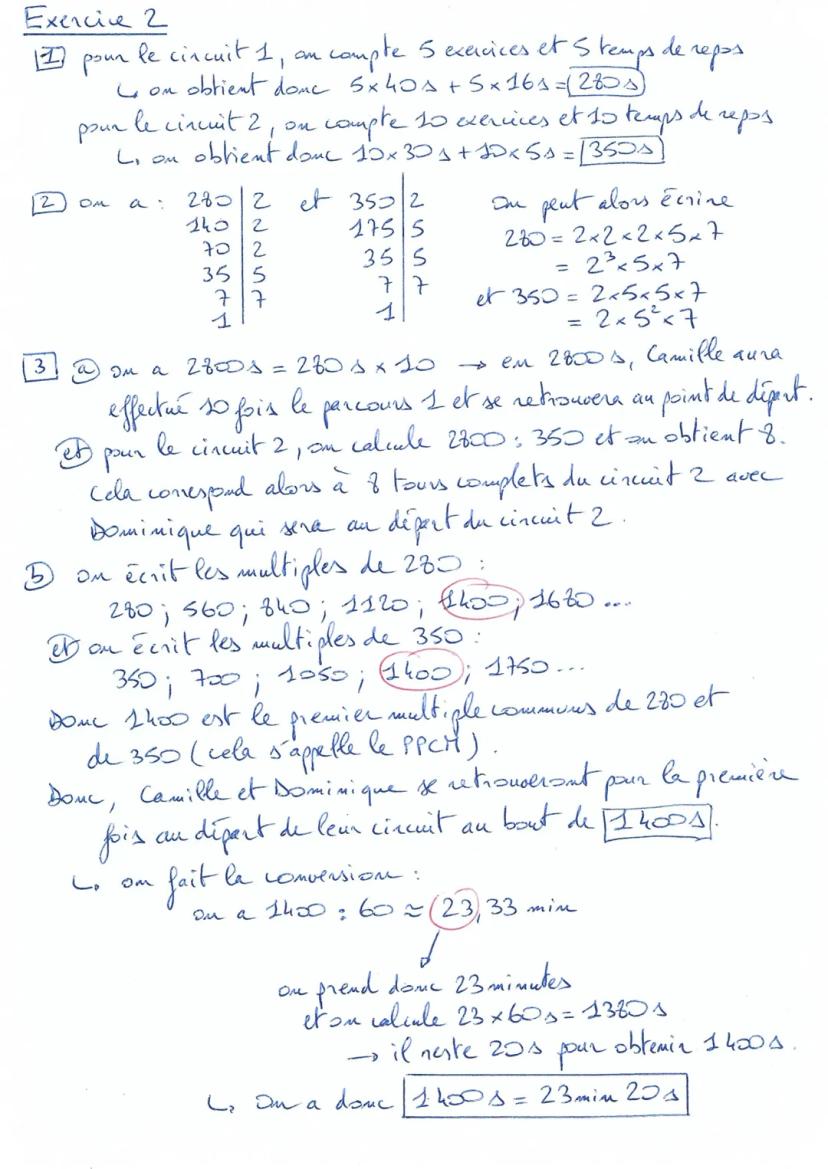 Exercice 2
1 pour le circuit 1, on compte 5 exercices et 5 temps de repos
↳ on obtient donc 5×40s + 5×16s = 280s
pour le circuit 2, on compte 10 exercices et 10 temps de repos
↳ on obtient donc 10×30s + 10×5s = 350s
2 on a : 280 | 2 et 350 | 2 On peut alors écrire
140 | 2 175 | 5 280 = 2×2×2×5×7
70 | 2 35 | 5 = 2³×5×7
35 | 5 7 | 7 et 350 = 2×5×5×7
7 | 7 1 | = 2×5²×7
1 |
3 a on a 2800s = 280s × 10 → en 2800s, Camille aura
effectué 10 fois le parcours 1 et se retrouvera au point de départ.
et pour le circuit 2, on calcule 2800 : 350 et on obtient 8.
Cela correspond alors à 8 tours complets du circuit 2 avec
Dominique qui sera au départ du circuit 2.
b on écrit les multiples de 280 :
280 ; 560 ; 840 ; 1120 ; 1400 ; 1680 ...
et on écrit les multiples de 350 :
350 ; 700 ; 1050 ; 1400 ; 1750 ...
Donc 1400 est le premier multiple communs de 280 et
de 350 (cela s'appelle le PPCM).
Donc, Camille et Dominique se retrouveront pour la première
fois au départ de leur circuit au bout de 1400s.
↳ on fait la conversion :
on a 1400 : 60 ≈ 23,33 min
on prend donc 23 minutes
et on calcule 23×60s = 1380s
→ il reste 20s pour obtenir 1400s.
↳ On a donc 1400s = 23min 20s